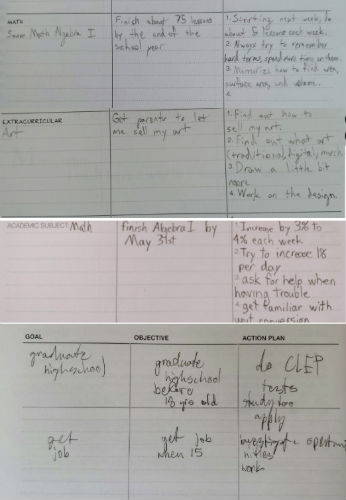 MATH
Saxon Math Algebra I
Finish about 75 lessons
by the end of the
school year
1. Starting next week, do
about 5 lessons each week.
2. Always try to remember
hard terms, spend more time on them.
3. Memorize how to find area,
surface area, and volume.
4.
EXTRACURRICULAR
Art
Get parents to let
me sell my art
1. Find out how to
sell my art.
2. Find out what art
(traditional, digital, merch
3. Draw a little bit
more
4. Work on the design.
ACADEMIC SUBJECT: Math
finish Algebra I by
May 31st
1. Increase by 3% to
4% each week
2. Try to increase 1%
per day
3. ask for help when
having trouble
4. get familiar with
unit conversion
GOAL
OBJECTIVE
ACTION PLAN
graduate
highschool
graduate
highschool
before
18 yrs old
do CLEP
tests
study too
apply
get
job
get job
when 15
investigate opportu
nities
work